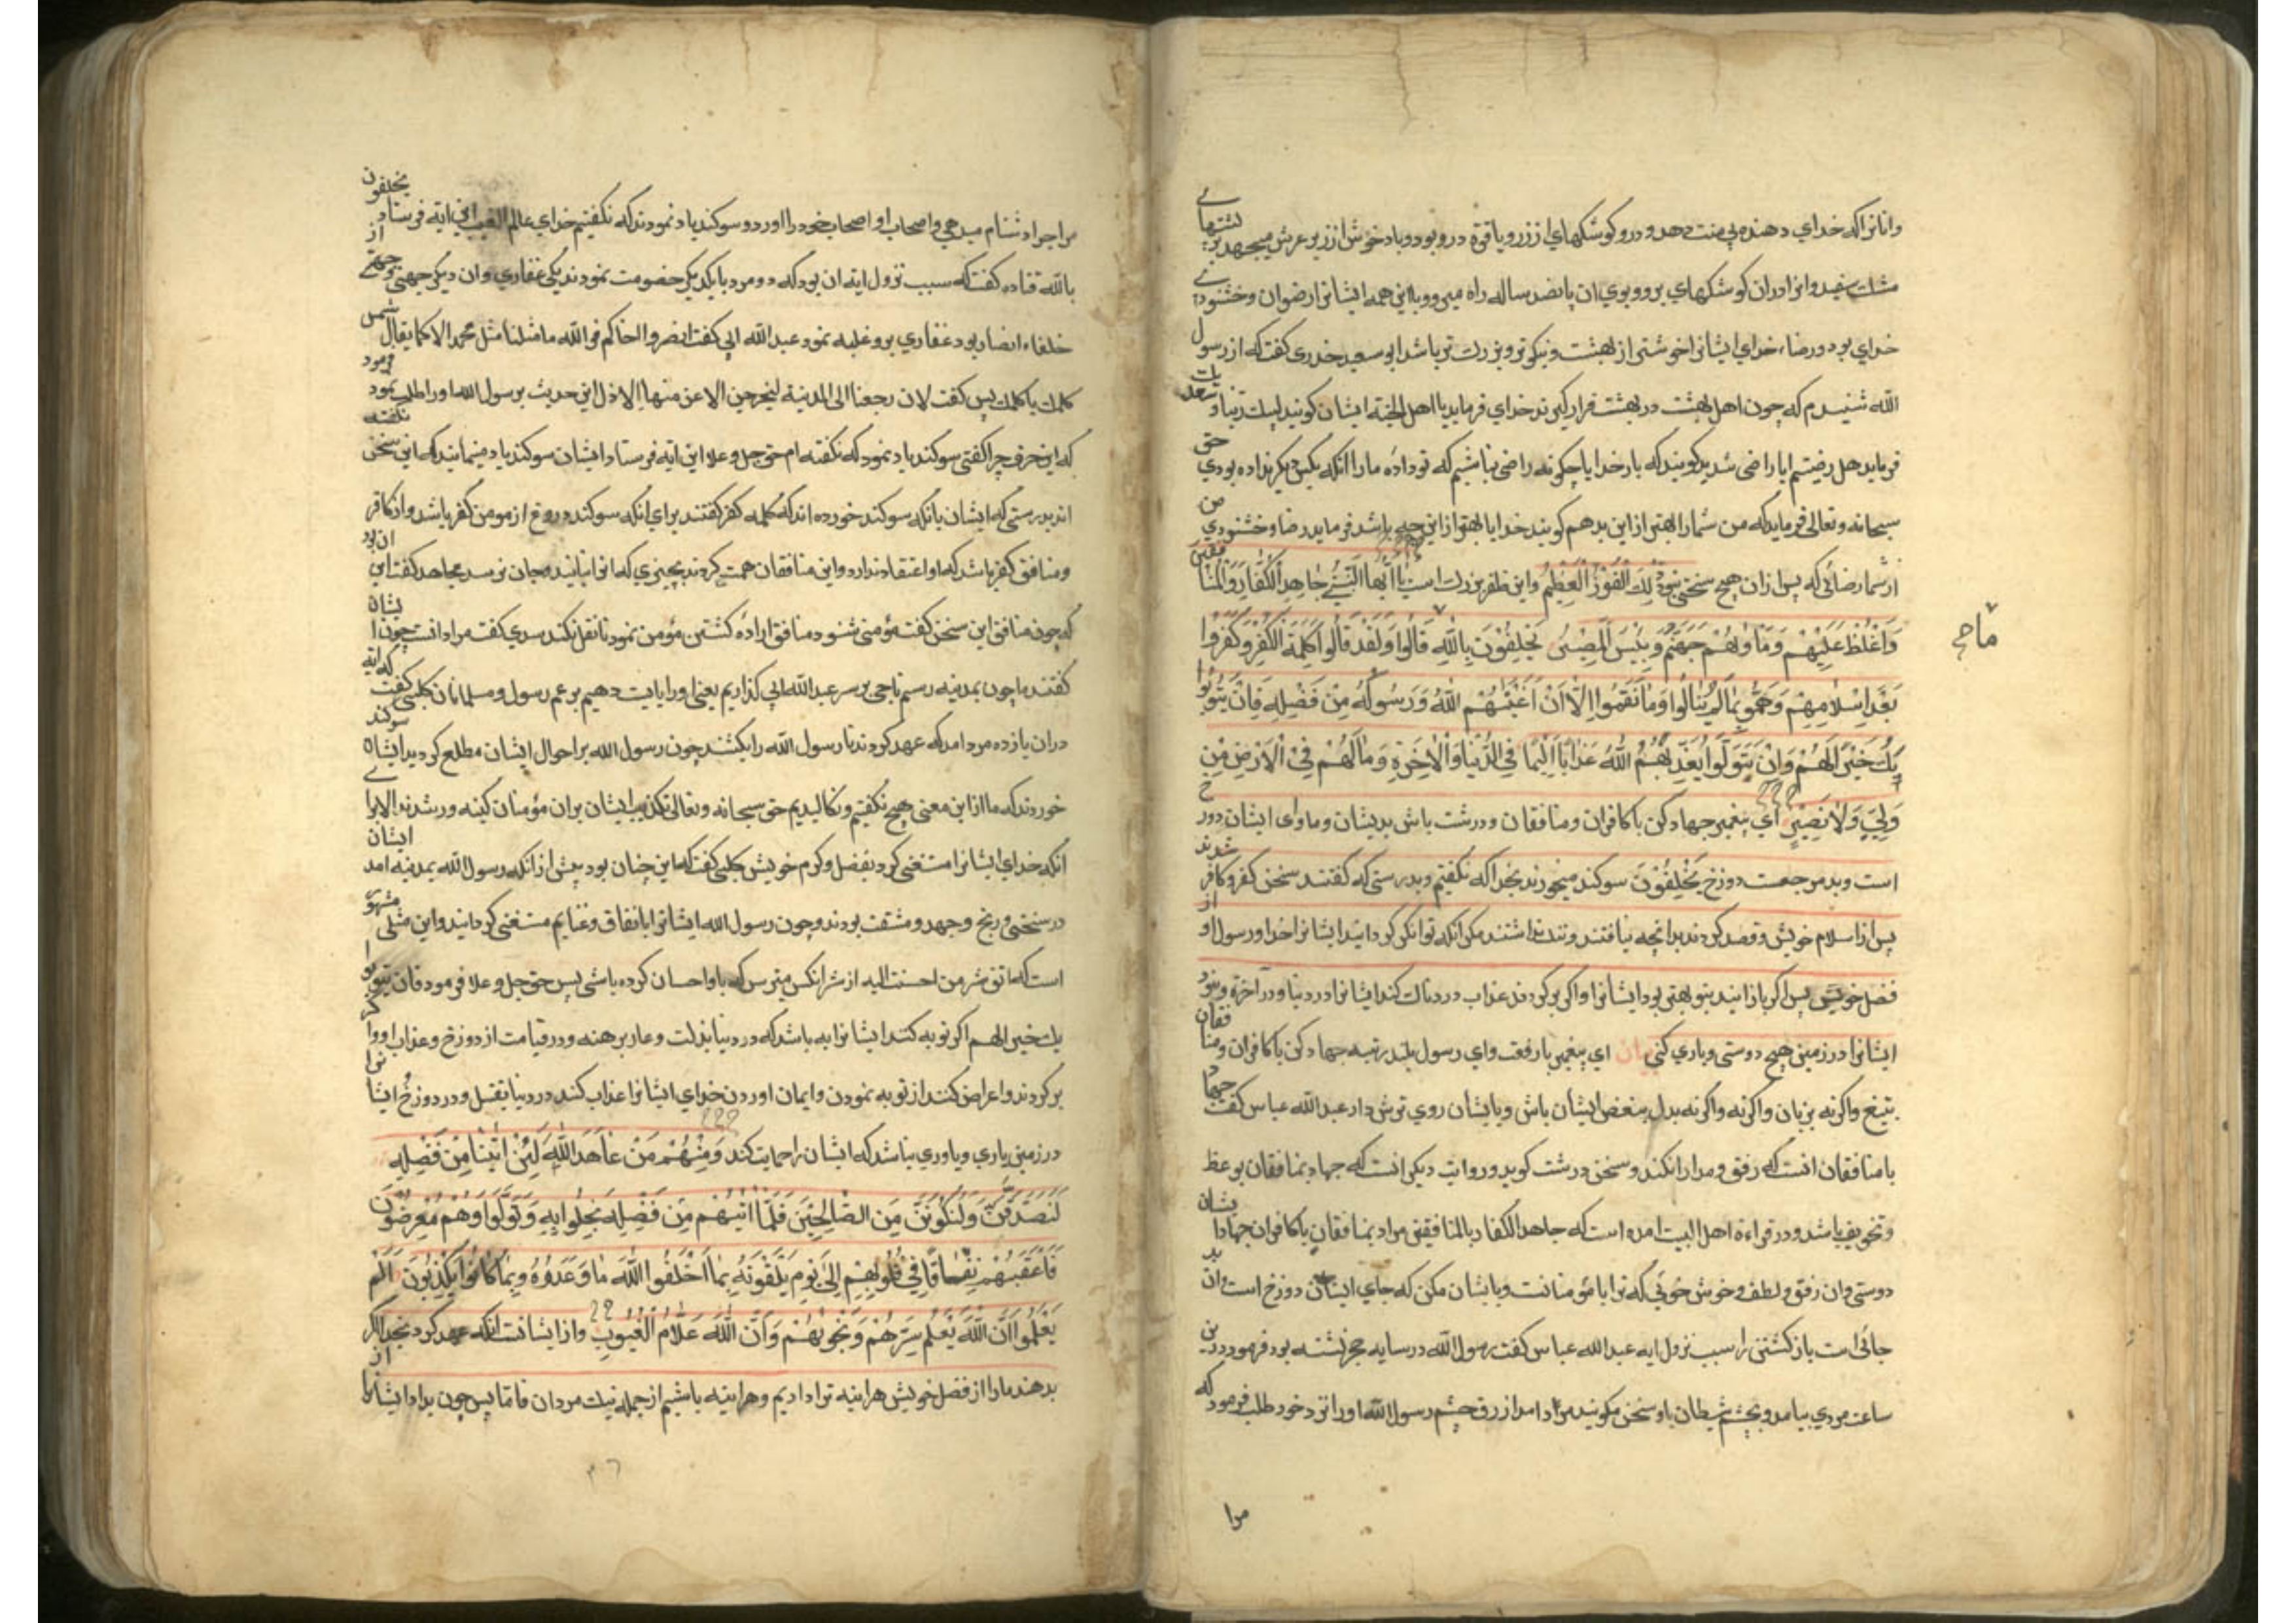 وانانرا که خدای دهنده بی منت دهد و در و کوشکهای از زر و یاقوة در و بود و باد خوش از زیر عرش میجهد بر پشتهای
مشک سفید و انرا در ان کوشکهای برد و بوی ان پانصد ساله راه میرود با این همه ایشانرا رضوان و خشنودی
خدای بود و رضاء خدای ایشانرا خوشتر از بهشت و نیکوتر و بزرک تر باشد ابو سعید خدری کفت که از رسول
الله شنیدم که چون اهل بهشت در بهشت قرار کیرند خدای فرماید یا اهل الجنة ایشان کویند لبیک ربنا و سعدیک
فرماید هل رضیتم ایا راضی شدید کویند که بار خدایا چکونه راضی نباشیم که تو داده ما را انکه بکس دیکر نداده بودی حق
سبحانه و تعالی فرماید که من شما را بهتر از این بدهم کویند خدایا بهتر از این چه باشد فرماید رضا و خشنودی من
از شما رضائی که پس از ان هیچ سختی نبود ذٰلِكَ الْفَوْزُ الْعَظِیْمُ و این ظفر بزرک است یٰا اَیُّهَا النَّبِیُّ جٰاهِدِ الْکُفّٰارَ وَالْمُنٰافِقِیْنَ
وَاغْلُظْ عَلَیْهِمْ وَمَأْوٰیهُمْ جَهَنَّمُ وَبِئْسَ الْمَصِیْرُ یَحْلِفُوْنَ بِاللّٰهِ مٰا قَالُوا وَلَقَدْ قَالُوا کَلِمَةَ الْکُفْرِ وَکَفَرُوا
بَعْدَ اِسْلٰامِهِمْ وَهَمُّوا بِمٰا لَمْ یَنٰالُوا وَمٰا نَقَمُوا اِلّٰا اَنْ اَغْنٰیهُمُ اللّٰهُ وَرَسُولُهُ مِنْ فَضْلِهِ فَاِنْ یَتُوبُوا
یَكُ خَیْرًا لَهُمْ وَاِنْ یَتَوَلَّوْا یُعَذِّبْهُمُ اللّٰهُ عَذٰابًا اَلِیْمًا فِی الدُّنْیٰا وَالْاٰخِرَةِ وَمٰا لَهُمْ فِی الْاَرْضِ مِنْ
وَلِیٍّ وَلٰا نَصِیْرٍ ای پیغمبر جهاد کن با کافران و منافقان و درشت باش بدیشان و ماوای ایشان دوزخ
است و بد مرجعست دوزخ یَحْلِفُوْنَ سوکند میخورند بخدا که نکفتیم و بدرستی که کفتند سخن کفر و کافر شدند
پس از اسلام خویش و قصد کردند بدانچه نیافتند و نداشتند مکر انکه توانکر کردانید ایشانرا خدا و رسول او از
فضل خویش پس اکر باز ایند بود بهتر بود ایشانرا و اکر برکردند عذاب دردناک کند ایشانرا در دنیا و در آخرة و نبود
ایشانرا در زمین هیچ دوستی و یاری کنی ای پیغمبر با رفعت و ای رسول بلند رتبه جهاد کن با کافران و منافقان
بتیغ و اکر نه بزبان و اکر نه بدل مبغض ایشان باش و با ایشان روی ترش دار عبد الله عباس کفت جهاد
با منافقان انست که رفق و مدارا نکند و سخن درشت کوید و روایت دیکر انست که جهاد بمنافقان بوعظ
و تخویف باشد و در قراءة اهل البیت امده است که جاهد الکفار بالمنافقین مراد بمنافقان با کافران جهاد
دوستی و ان رفق و لطف و خوش خوئی که ترا با مؤمنانست با ایشان مکن که جای ایشان دوزخ است و ان بد
جائی است باز کشتن را سبب نزول ایه عبد الله عباس کفت رسول الله در سایه حجر نشسته بود فرمود درین
ساعت مردی بیامد و بچشم شیطان با و سخن مکویند مردی امد ازرق چشم رسول الله او را نزد خود طلب فرمود که
مرا
مرا چرا دشنام میدهی و اصحاب او اصحاب خود را اورد و سوکند یاد نمودند که نکفتیم خدای عالم الغیب این ایه فرستاد یحلفون
بالله قتاده کفت که سبب نزول ایه ان بود که دو مرد با یکدیکر خصومت نمودند یکی غفاری و ان دیکر جهنی و جهنی از
خلفاء انصار بود غفاری برو غلبه نمود عبد الله ابی کفت انصروا اخاکم فو الله ما مثلنا مثل محمد الا کما یقال سمن
کلبك یاکلك پس کفت لان رجعنا الی المدینة لیخرجن الاعز منها الاذل این حدیث برسول الله او را طلب نمود و فرمود
که این حرف چرا کفتی سوکند یاد نمود که نکفته ام حق جل و علا این ایه فرستاد ایشان سوکند یاد مینمایند که این سخن نکفته
اند بدرستی که ایشان بانکه سوکند خورده اند که کلمه کفر کفتند برای انکه سوکند دروغ از مومن کفر باشد و از کافر
و منافق کفر باشد که او اعتقاد ندارد و این منافقان همت کردند بچیزی که انرا نیابند و بدان نرسد مجاهد کفت این ان بود
که چون منافق این سخن کفت مؤمنی شنود منافق اراده کشتن مؤمن نمود تا نقل نکند سدی کفت مراد انست چون ایشان
کفتند ما چون بمدینه رسیم تاجی بر سر عبد الله ابی کذاریم یعنی او را رایت دهیم برغم رسول و مسلمانان کلبی کفت که ایه
در ان یازده مرد امد که عهد کردند تا رسول الله را بکشند چون رسول الله بر احوال ایشان مطلع کردید ایشان سوکند
خوردند که ما از این معنی هیچ نکفتیم و نکالیدیم حق سبحانه و تعالی تکذیب ایشان بران مؤمنان کینه ور شدند الا برای
انکه خدای ایشانرا مستغنی کرد بفضل و کرم خویش کلبی کفت که این چنان بود پیش از انکه رسول الله بمدینه امد ایشان
در سختی و رنج و جهد و مشقت بودند و چون رسول الله ایشانرا با نفاق و غنایم مستغنی کردانید و این مثلی مشهور
است که اتق شر من احسنت الیه از شر انکس بترس که باو احسان کرده باشی پس حق جل و علا فرمود فان یتوبوا
یك خیرا لهم اکر توبه کنند ایشانرا به باشد که در دنیا بذلت و عار برهند و در قیامت از دوزخ و عذاب او و اکر
برکردند و اعراض کنند از توبه نمودن و ایمان اوردن خدای ایشانرا عذاب کند در دنیا بقتل و در دوزخ ایشانرا
در زمین یاری و یاوری نباشد که ایشان را حمایت کند وَمِنْهُمْ مَنْ عٰاهَدَ اللّٰهَ لَئِنْ اٰتٰینٰا مِنْ فَضْلِهِ
لَنَصَّدَّقَنَّ وَلَنَکُوْنَنَّ مِنَ الصّٰالِحِیْنَ فَلَمّٰا اٰتٰیهُمْ مِنْ فَضْلِهِ بَخِلُوا بِهِ وَتَوَلَّوْا وَهُمْ مُعْرِضُوْنَ
فَاَعْقَبَهُمْ نِفٰاقًا فِیْ قُلُوبِهِمْ اِلٰی یَوْمِ یَلْقَوْنَهُ بِمٰا اَخْلَفُوا اللّٰهَ مٰا وَعَدُوهُ وَبِمٰا کٰانُوا یَکْذِبُوْنَ اَلَمْ
یَعْلَمُوا اَنَّ اللّٰهَ یَعْلَمُ سِرَّهُمْ وَنَجْوٰیهُمْ وَاَنَّ اللّٰهَ عَلّٰامُ الْغُیُوْبِ و از ایشانست انکه عهد کرد بخدا اکر
بدهند ما را از فضل خویش هراینه تراداریم و هراینه باشیم از جمله نیک مردان فاما پس چون بداد ایشانرا از